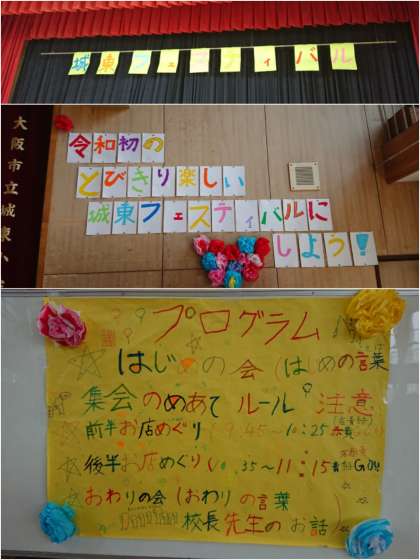 城東フェスティバル
令和初の
とびきり楽しい
城東フェスティバルに
しよう!
大阪市立城東小
プログラム
はじめの会(はじめの言葉
集会のめあて ルール 注意
前半お店めぐり(9:45~10:25
後半お店めぐり(10:35~11:15
おわりの会(おわりの言葉
校長先生のお話)